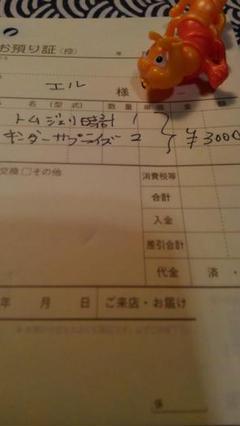 お預り証(控) 年
エル 様
名(型式) 数量 単価 金 額
トムジェリ時計 1
キンダーサプライズ 2 } ¥3000
交換 □その他 消費税等
合計
入金
差引合計
代金 済・
年 月 日 ご来店・お届け
係